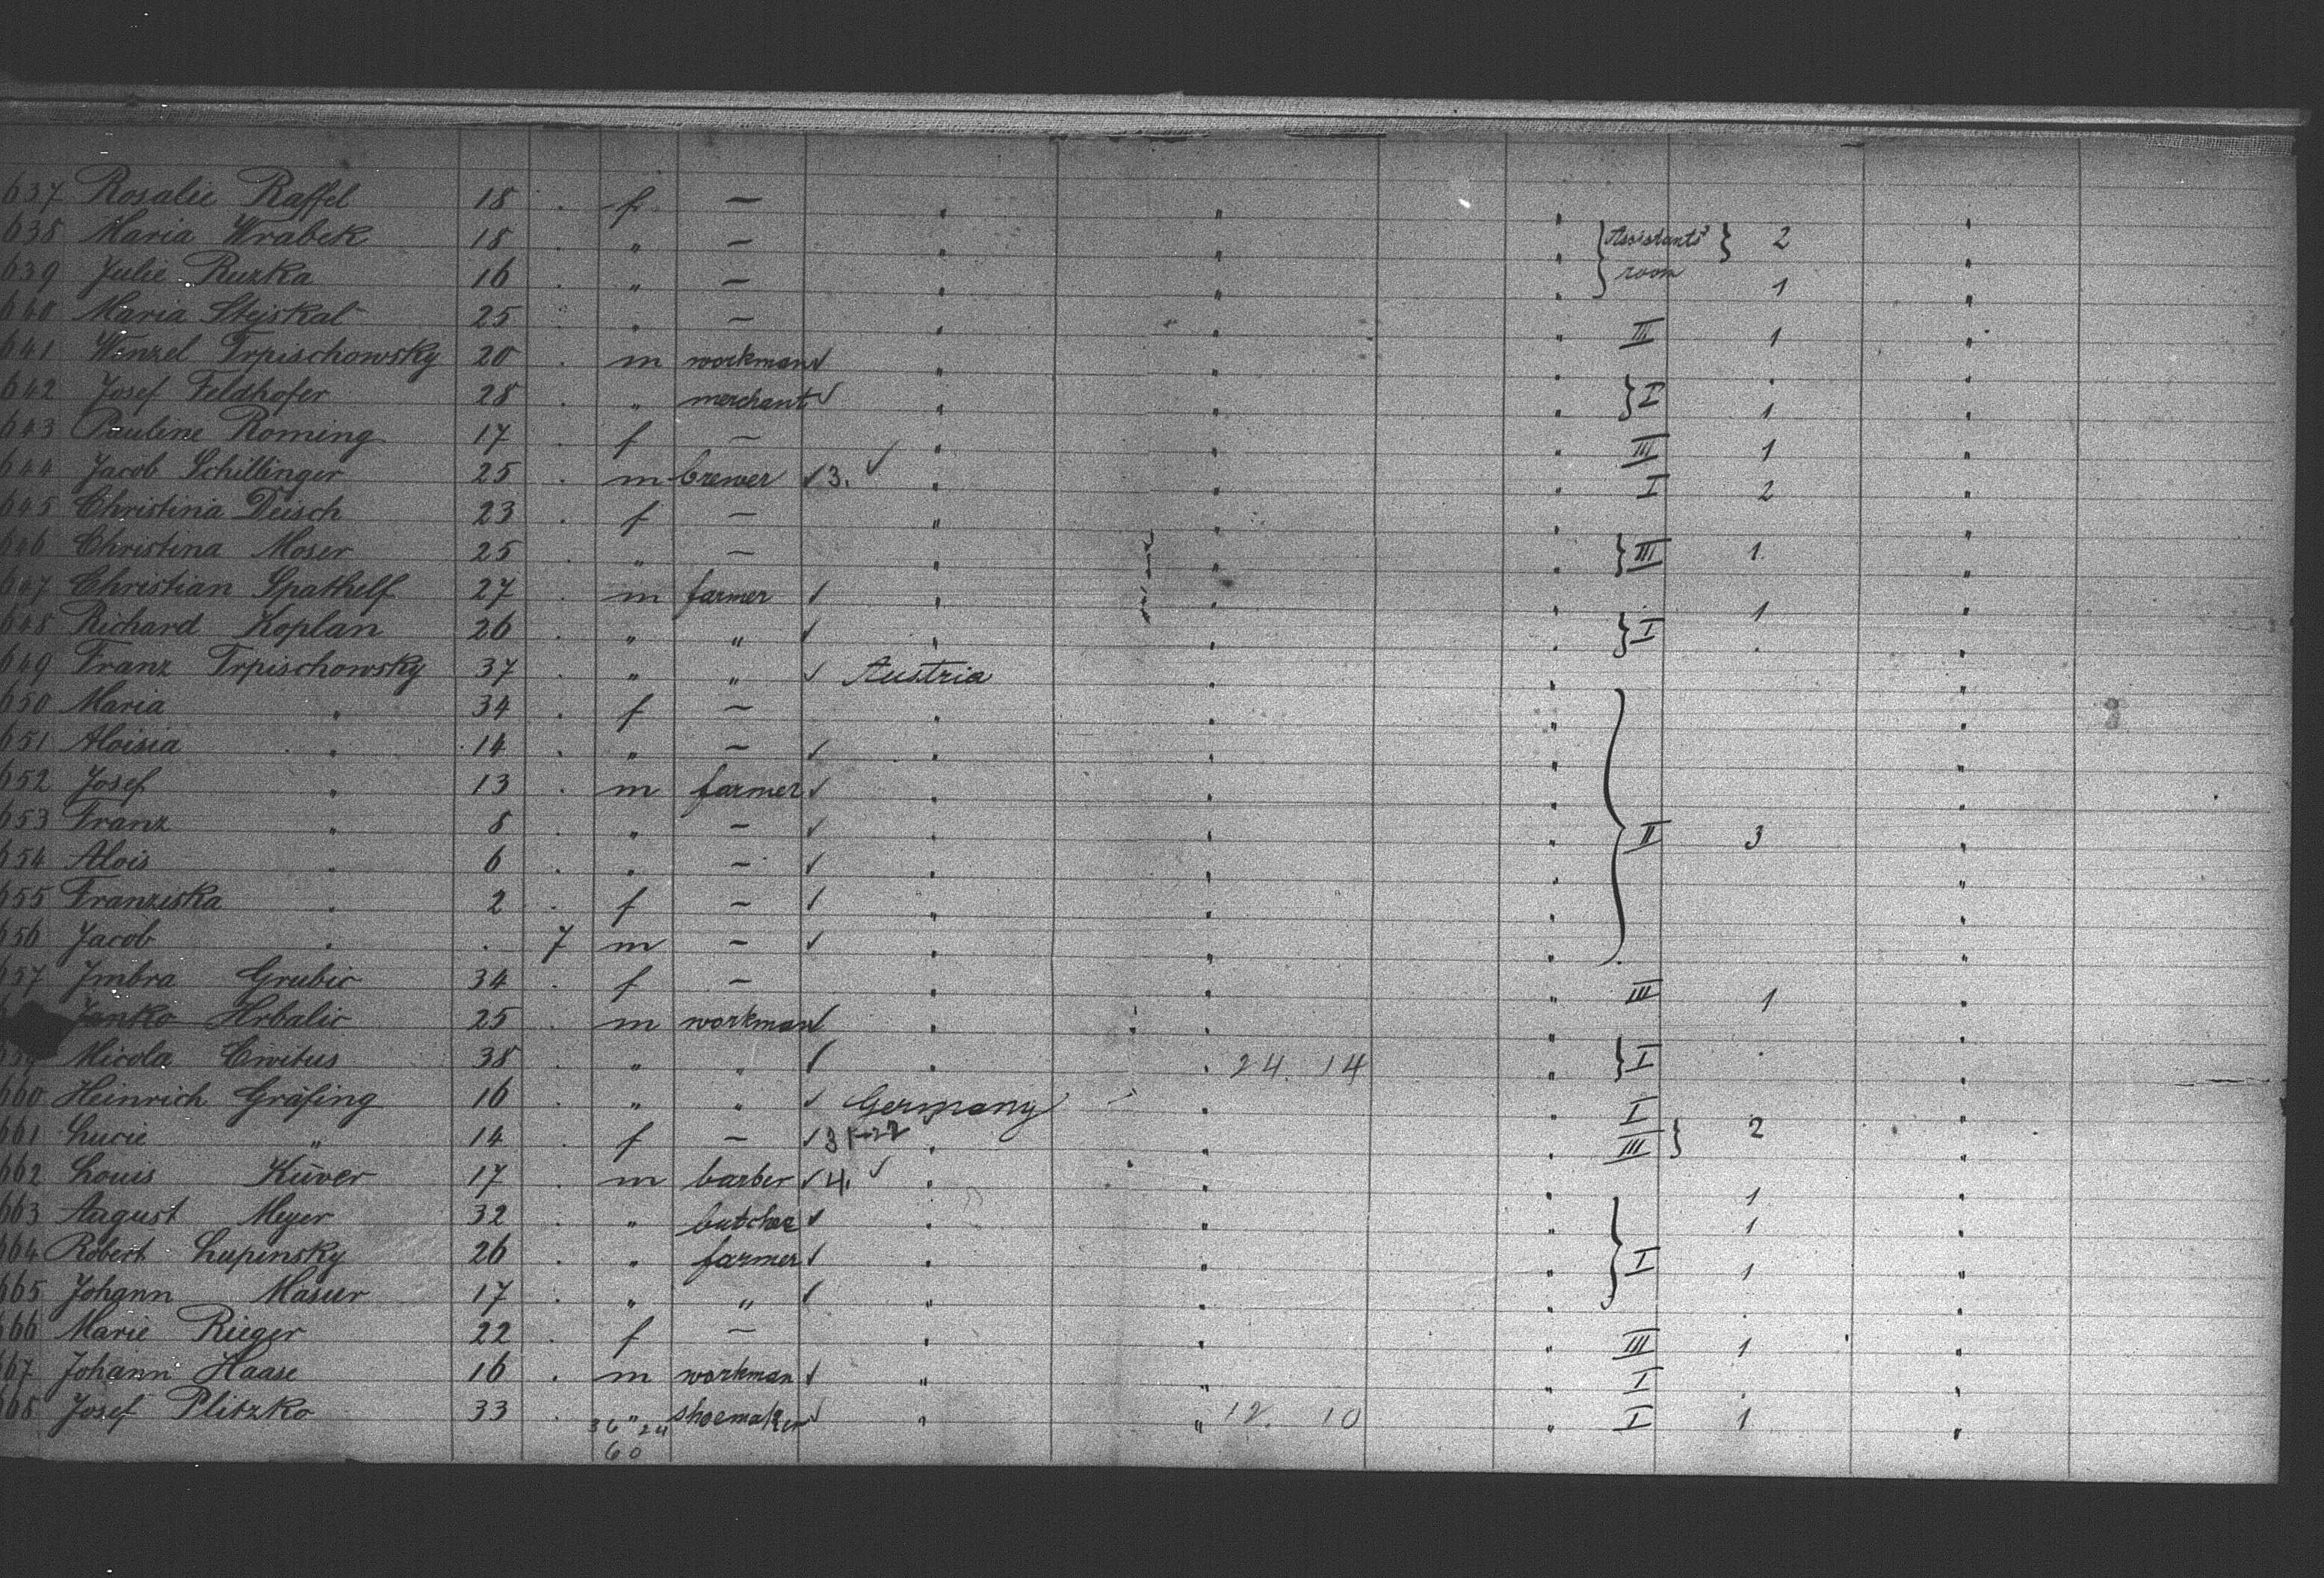 637 Rosalie Raffel 18 . f. — " " "
638 Maria Wrabek 18 . " — " " " { Assistants' } 2 "
639 Julie Ruzka 16 . " — " " " room 1 "
660 Maria Stejskal 25 . " — " " " III 1 "
641 Wenzel Trpischowsky 20 . m workman ✓ " " " . "
642 Josef Feldhofer 28 . " merchant ✓ " " " } I 1 "
643 Pauline Roming 17 . f — " " " III 1 "
644 Jacob Schillinger 25 . m brewer ✓ 3. ✓ " " " I 2 "
645 Christina Deisch 23 . f — " " " "
646 Christina Moser 25 . " — " " " } III 1. "
647 Christian Spathelf 27 . m farmer ✓ " " " 1 "
648 Richard Koplan 26 . " " ✓ " " " } I . "
649 Franz Trpischowsky 37 . " " ✓ Austria " " "
650 Maria " 34 . f — " " " "
651 Aloisia " 14 . " — ✓ " " " "
652 Josef " 13 . m farmer ✓ " " " "
653 Franz " 8 . " — ✓ " " " } II 3 "
654 Alois " 6 . " — ✓ " " " "
655 Franziska " 2 . f — ✓ " " " "
656 Jacob " . 7 m — ✓ " " " "
657 Imbra Grubic 34 . f — " " " III 1 "
Janko Hrbalic 25 . m workman ✓ " " " "
Micola Cwitus 38 . " " ✓ " " 24. 14 " } I . "
660 Heinrich Gräfing 16 . " " ✓ Germany " " I "
661 Lucie " 14 . f — ✓ " " " III } 2 "
662 Louis Küver 17 . m barber ✓ 4. ✓ " " " 1 "
663 August Meyer 32 . " butcher ✓ " " " 1 "
664 Robert Lupinsky 26 . " farmer ✓ " " " } I 1 "
665 Johann Masur 17 . " " ✓ " " " . "
666 Marie Rieger 22 . f — " " " III 1 "
667 Johann Haase 16 . m workman ✓ " " " I . "
668 Josef Plitzko 33 . " shoemaker ✓ " " 12. 10 " I 1 "
36 24
60